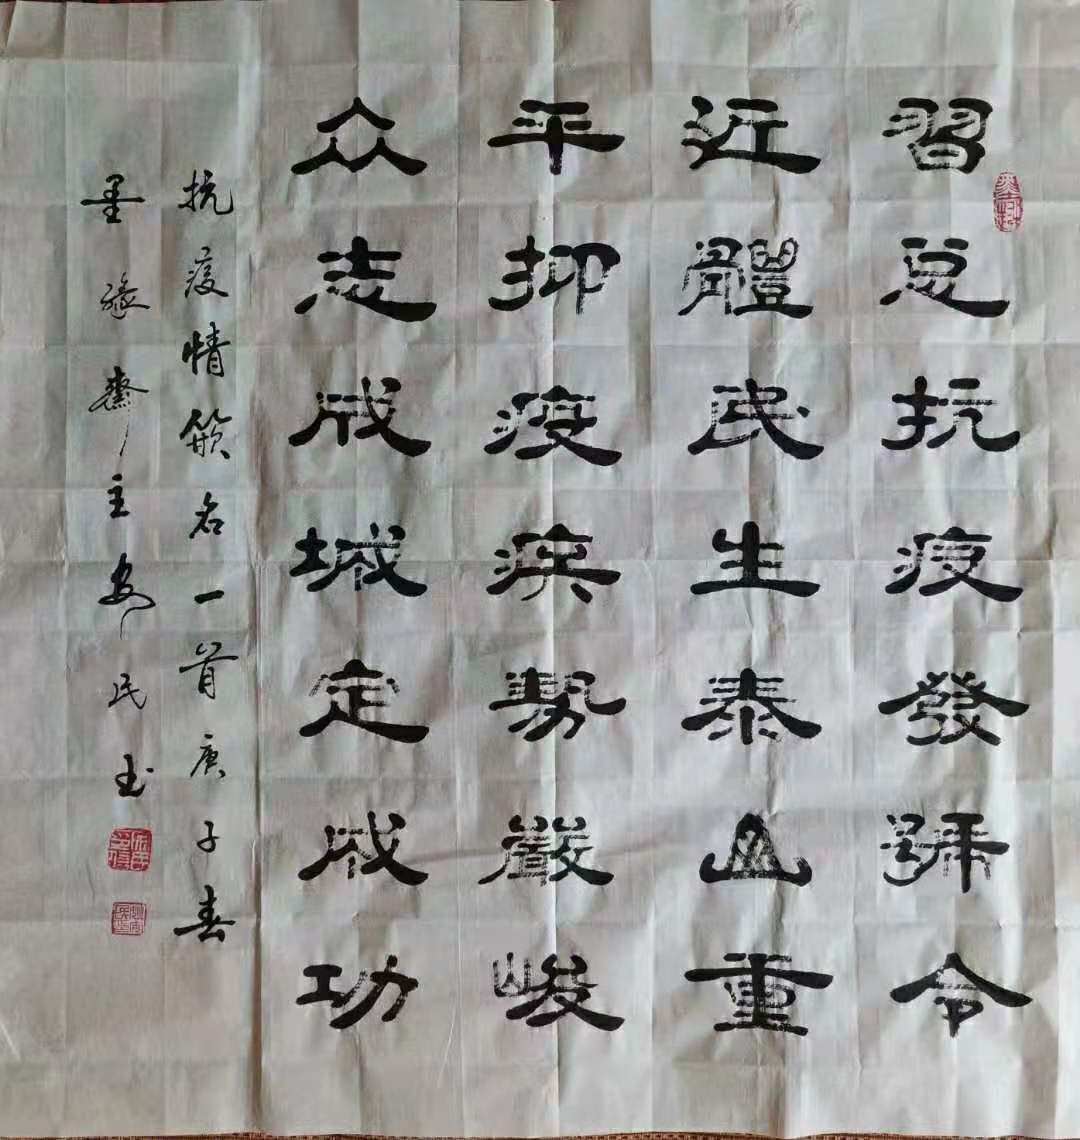 習总抗疫發號令
近體民生泰山重
平抑疫疾勢嚴峻
众志成城定成功
抗疫情篏名一首庚子春
墨緣齋主安民书